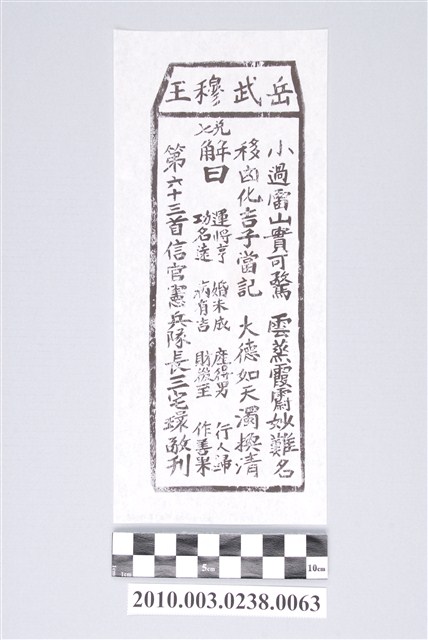 岳武穆王
小過雷山實可驚 雲蒸霞蔚妙難名
移凶化吉子當記 大德如天濁換清
兌七
解曰
運將亨 婚未成 產得男 行人歸
功名遠 病有吉 財漸至 作善果
第六十三首信官憲兵隊長三宅錄敬刊
1cm 5cm 10cm
2010.003.0238.0063